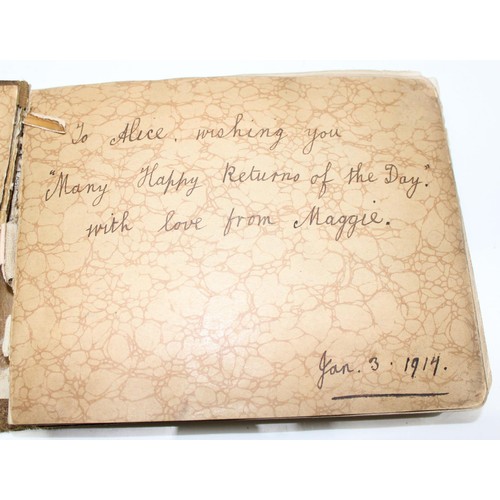 To Alice, wishing you
"Many Happy Returns of the Day".
with love from Maggie.
Jan. 3. 1914.